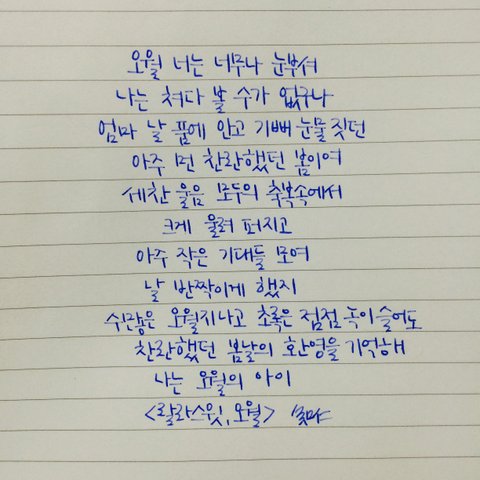 오월 너는 너무나 눈부셔
나는 쳐다 볼 수가 없구나
엄마 날 품에 안고 기뻐 눈물 짓던
아주 먼 찬란했던 봄이여
세찬 울음 모두의 축복속에서
크게 울려 퍼지고
아주 작은 기대들 모여
날 반짝이게 했지
수많은 오월지나고 초록은 점점 녹이 슬어도
찬란했던 봄날의 환영을 기억해
나는 오월의 아이
<랄라스윗, 오월>